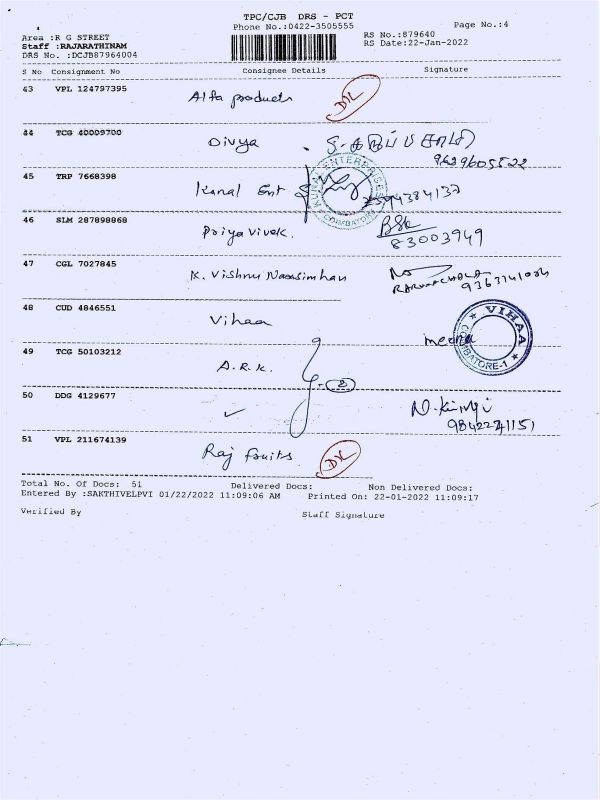 TPC/CJB DRS - PCT
Phone No.:0422-3505555 Page No.:4
Area :R G STREET RS No.:879640
Staff :RAJARATHINAM RS Date:22-Jan-2022
DRS No. :DCJB87964004
S No Consignment No Consignee Details Signature
43 VPL 124797395 Alfa products DK
44 TCG 40009700 Divya
9629605522
45 TRP 7668398 Kunal Ent KUNAL ENTERPRISES COIMBATORE
46 SLM 287898868 Priya Vivek.
83003949
47 CGL 7027845 K. Vishnu Narasimhan
48 CUD 4846551 Vihaa meena VIHAA COIMBATORE-1
49 TCG 50103212 A.R.K. 2
50 DDG 4129677 ✓
9842241151
51 VPL 211674139 Raj fruits DK
Total No. Of Docs: 51 Delivered Docs: Non Delivered Docs:
Entered By :SAKTHIVELPVI 01/22/2022 11:09:06 AM Printed On: 22-01-2022 11:09:17
Verified By Staff Signature